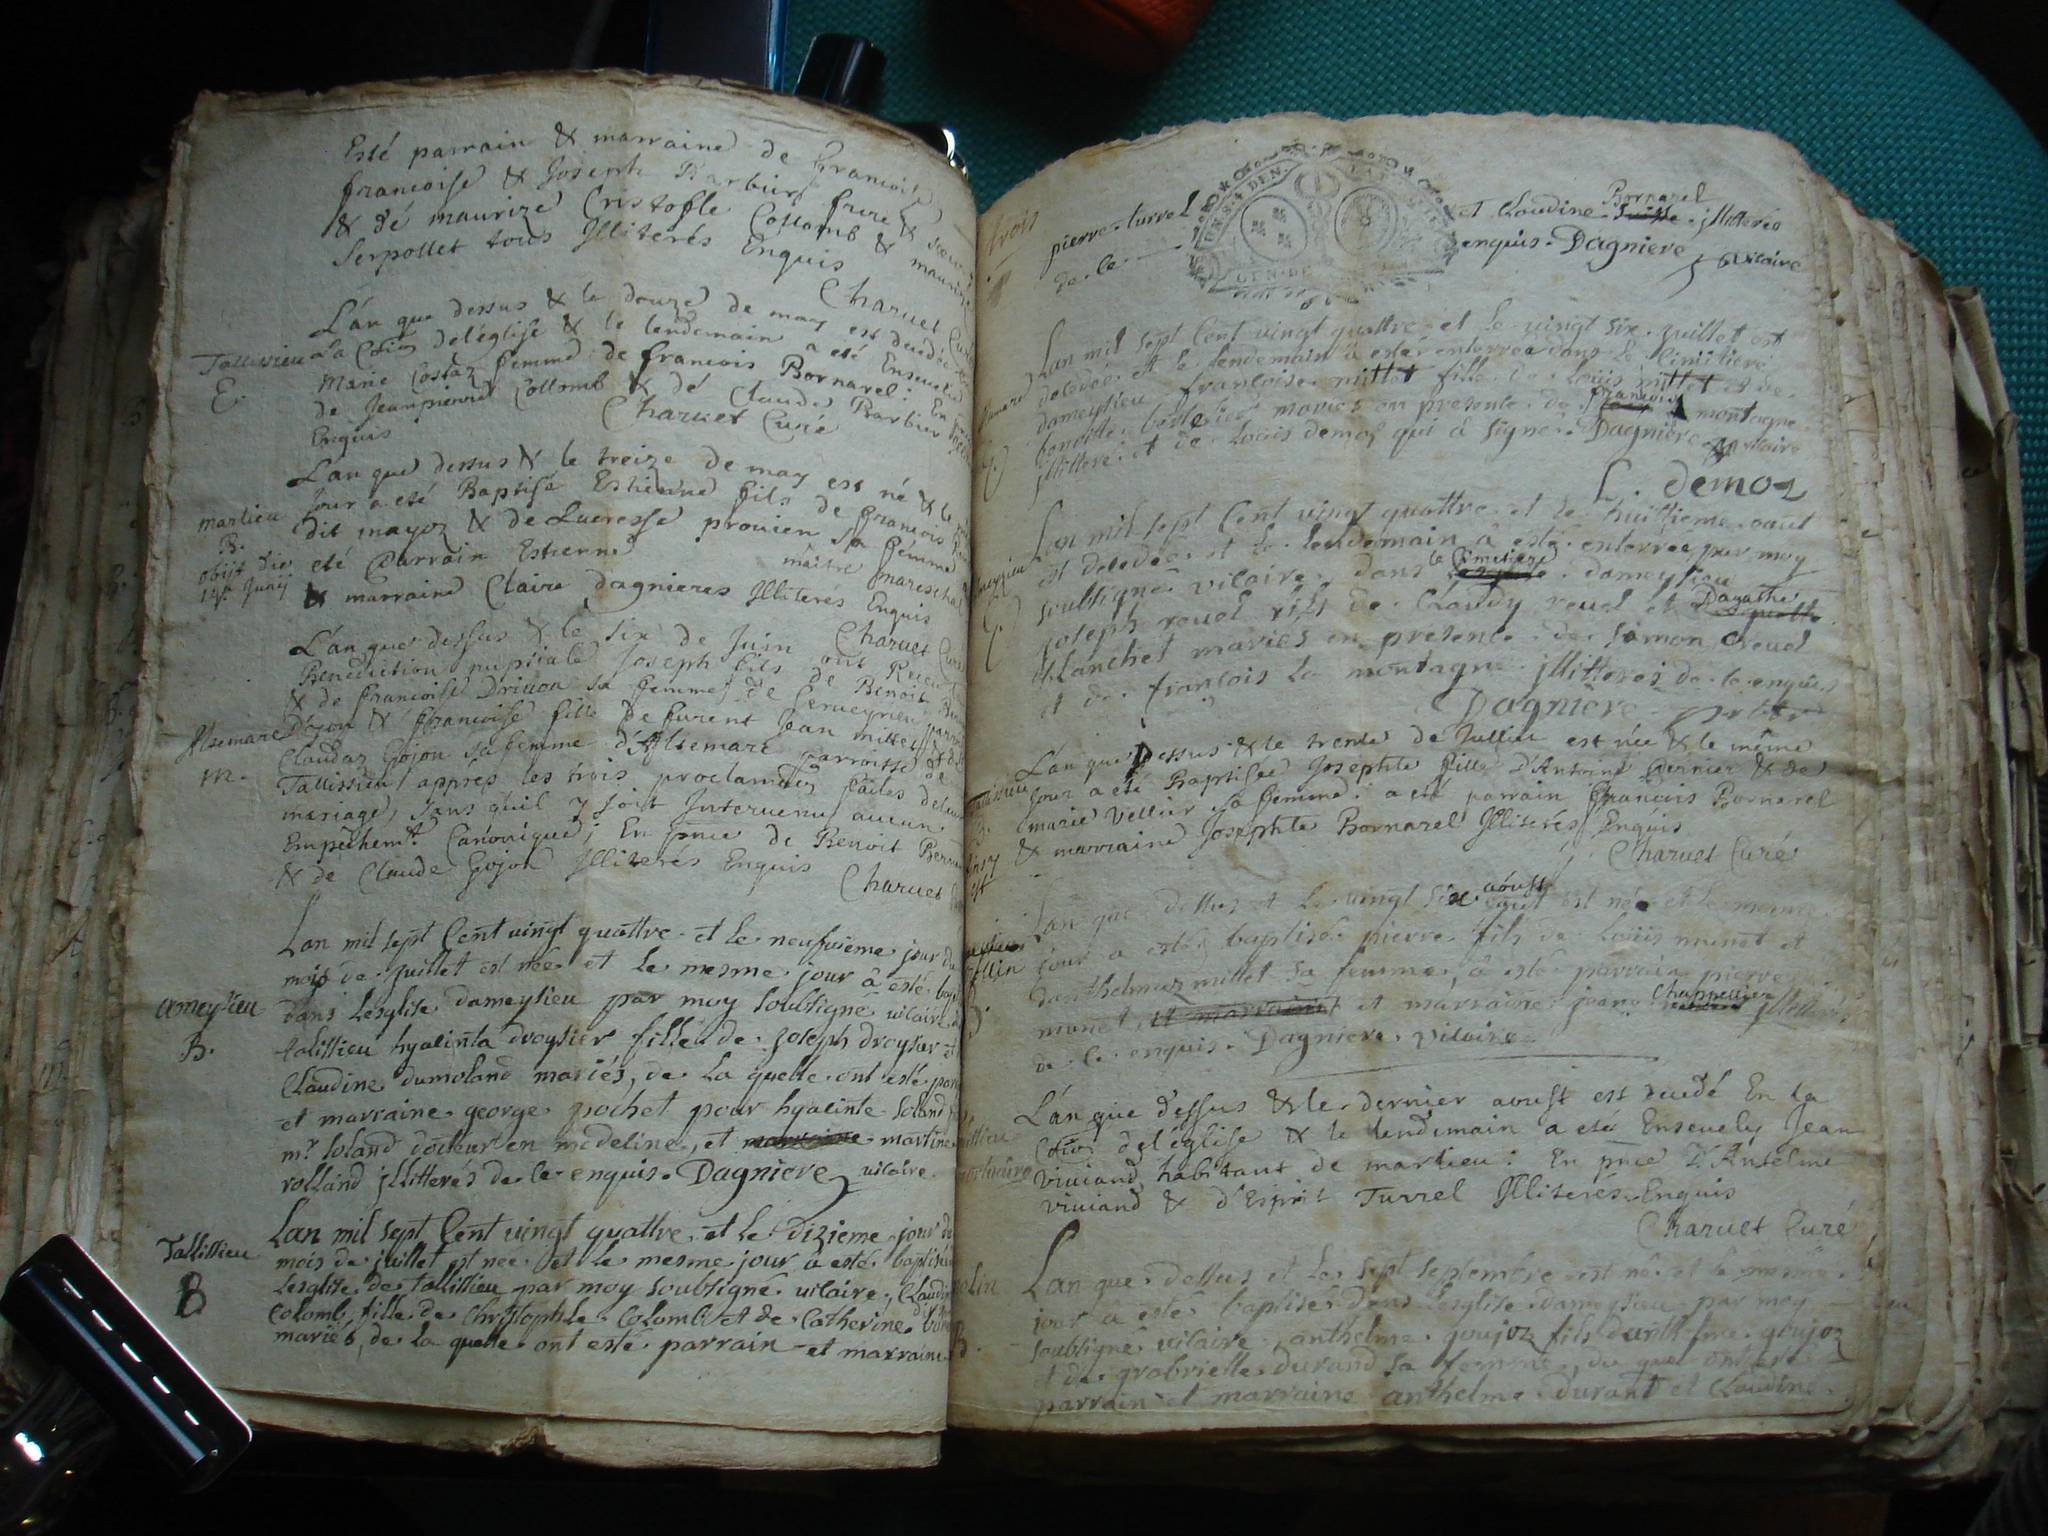 Esté parrain & marraine de francois
francoise & Joseph Barbier frere & soeur
& dé maurize Cristofle Collomb & maurize
Serpollet tous Illiterés Enquis
Charuet Curé
L'an que dessus & le douze de may est decedée
a la Cõion del'église & le lendemain a eté Ensevelie
Marie Costaz femme de francois Bornarel: En
de Jeanpierre Collomb & dé Claude Barbier
Enquis Charuet Curé
E.
L'an que dessus & le treize de may est né & le
Jour a eté Baptisé Estienne fils de francois
dit mayoz & de Lucresse prouien sa femme
eté Parrain Estienne maitre mareschal
& marraine Claire dagnieres Illiteres Enquis
Charuet Curé
marlieu
B.
obijt die
Junij
L'an que dessus & le six de Juin ont Receu
Benediction nuptiale Joseph fils de Benoit
& de francoise Driuon sa femme de
D'yon & francoise fille de furent Jean millet & de
Claudaz Gojon sa femme d'Alsemare parroisse de
Tallissieu appres les trois proclamãons faites de
mariage, sans qu'il y soit Interuenu aucun
Empêchemt. Canonique; En pnce de Benoit
& de Claude Gojon Illiterés Enquis Charuet
Alsemare
m.
Lan mil sept Cent vingt quattre et le neufvieme jour du
mois de juillet est née et le mesme jour â esté
dans Lesglise dameysieu par moy soubsigné vicaire
talissieu hyacinta droysier fille de joseph droysier et
Claudine dumoland mariés, de La quelle ont esté
et marraine george pochet pour hyacinte Soland
mr. Soland docteur en medeline, et marraine martine
rolland jllitterés de ce enquis. Dagniere vicaire
ameysieu
B.
Lan mil sept Cent vingt quattre et le dizieme jour de
mois de juillet est née et le mesme jour â esté baptisée
Lesglise de tallissieu par moy soubsigné vicaire Claudine
Colomb fille de Christophle Colomb et de Catherine
mariés, de la quelle ont esté parrain et marraine
Tallissieu
B
trois
pierre turrel et Claudine Bornarel jllitterés
de ce enquis. Dagniere vicaire
GEN. DE
Lan mil sept Cent vingt quattre et le vingt six juillet est
decedée et le lendemain â esté enterrée dans le Cimistiere
dameysieu francoise millet fille de Loüis millet et de
mariés en presence de francois montagne
jllitteré et de Loüis demoz qui â signé. Dagniere vicaire
L. demoz
Lan mil sept Cent vingt quattre et le huittieme aout
est decedée et le lendemain â esté enterrée par moy
soubsigné vicaire dans le Cimetiere dameysieu
joseph reuel fils de Claudy reuel et Dagathe
blanchet mariés en presence de simon reuel
et de francois La montagne jllitteres de ce enquis
Dagniere
L'an que Dessus & le trente de Jullin est née & le même
Jour a eté Baptisée Josephte fille D'Antoine Bernier & de
marie Vellier sa femme: a eté parrain francois Bornarel
& marraine Josephte Bornarel Illiterés Enquis
Charuet Curé
Lan que dessus et le vingt six aoust est née et le mesme
jour a esté baptisé pierre fils de Loüis munet et
danthelmaz millet sa femme, â esté parrain pierre
munet et marraine et marraine jeane Chappellier
de ce enquis. Dagniere vicaire
L'an que d'essus & le dernier aoust est decedé En la
Cõion del'église & le lendemain a eté Ensevely Jean
viviand habitant de marlieu: En pnce D'Antelme
viviand & d'Esprit Turrel Illiterés Enquis
Charuet Curé
Lan que dessus et le sept septembre est né et le mesme
jour â esté baptisé dans lesglise dameysieu par moy
soubsigné vicaire anthelme goujoz fils goujoz
et de grabrielle durand sa femme, du quel ont esté
parrain et marraine anthelme durant et Claudine